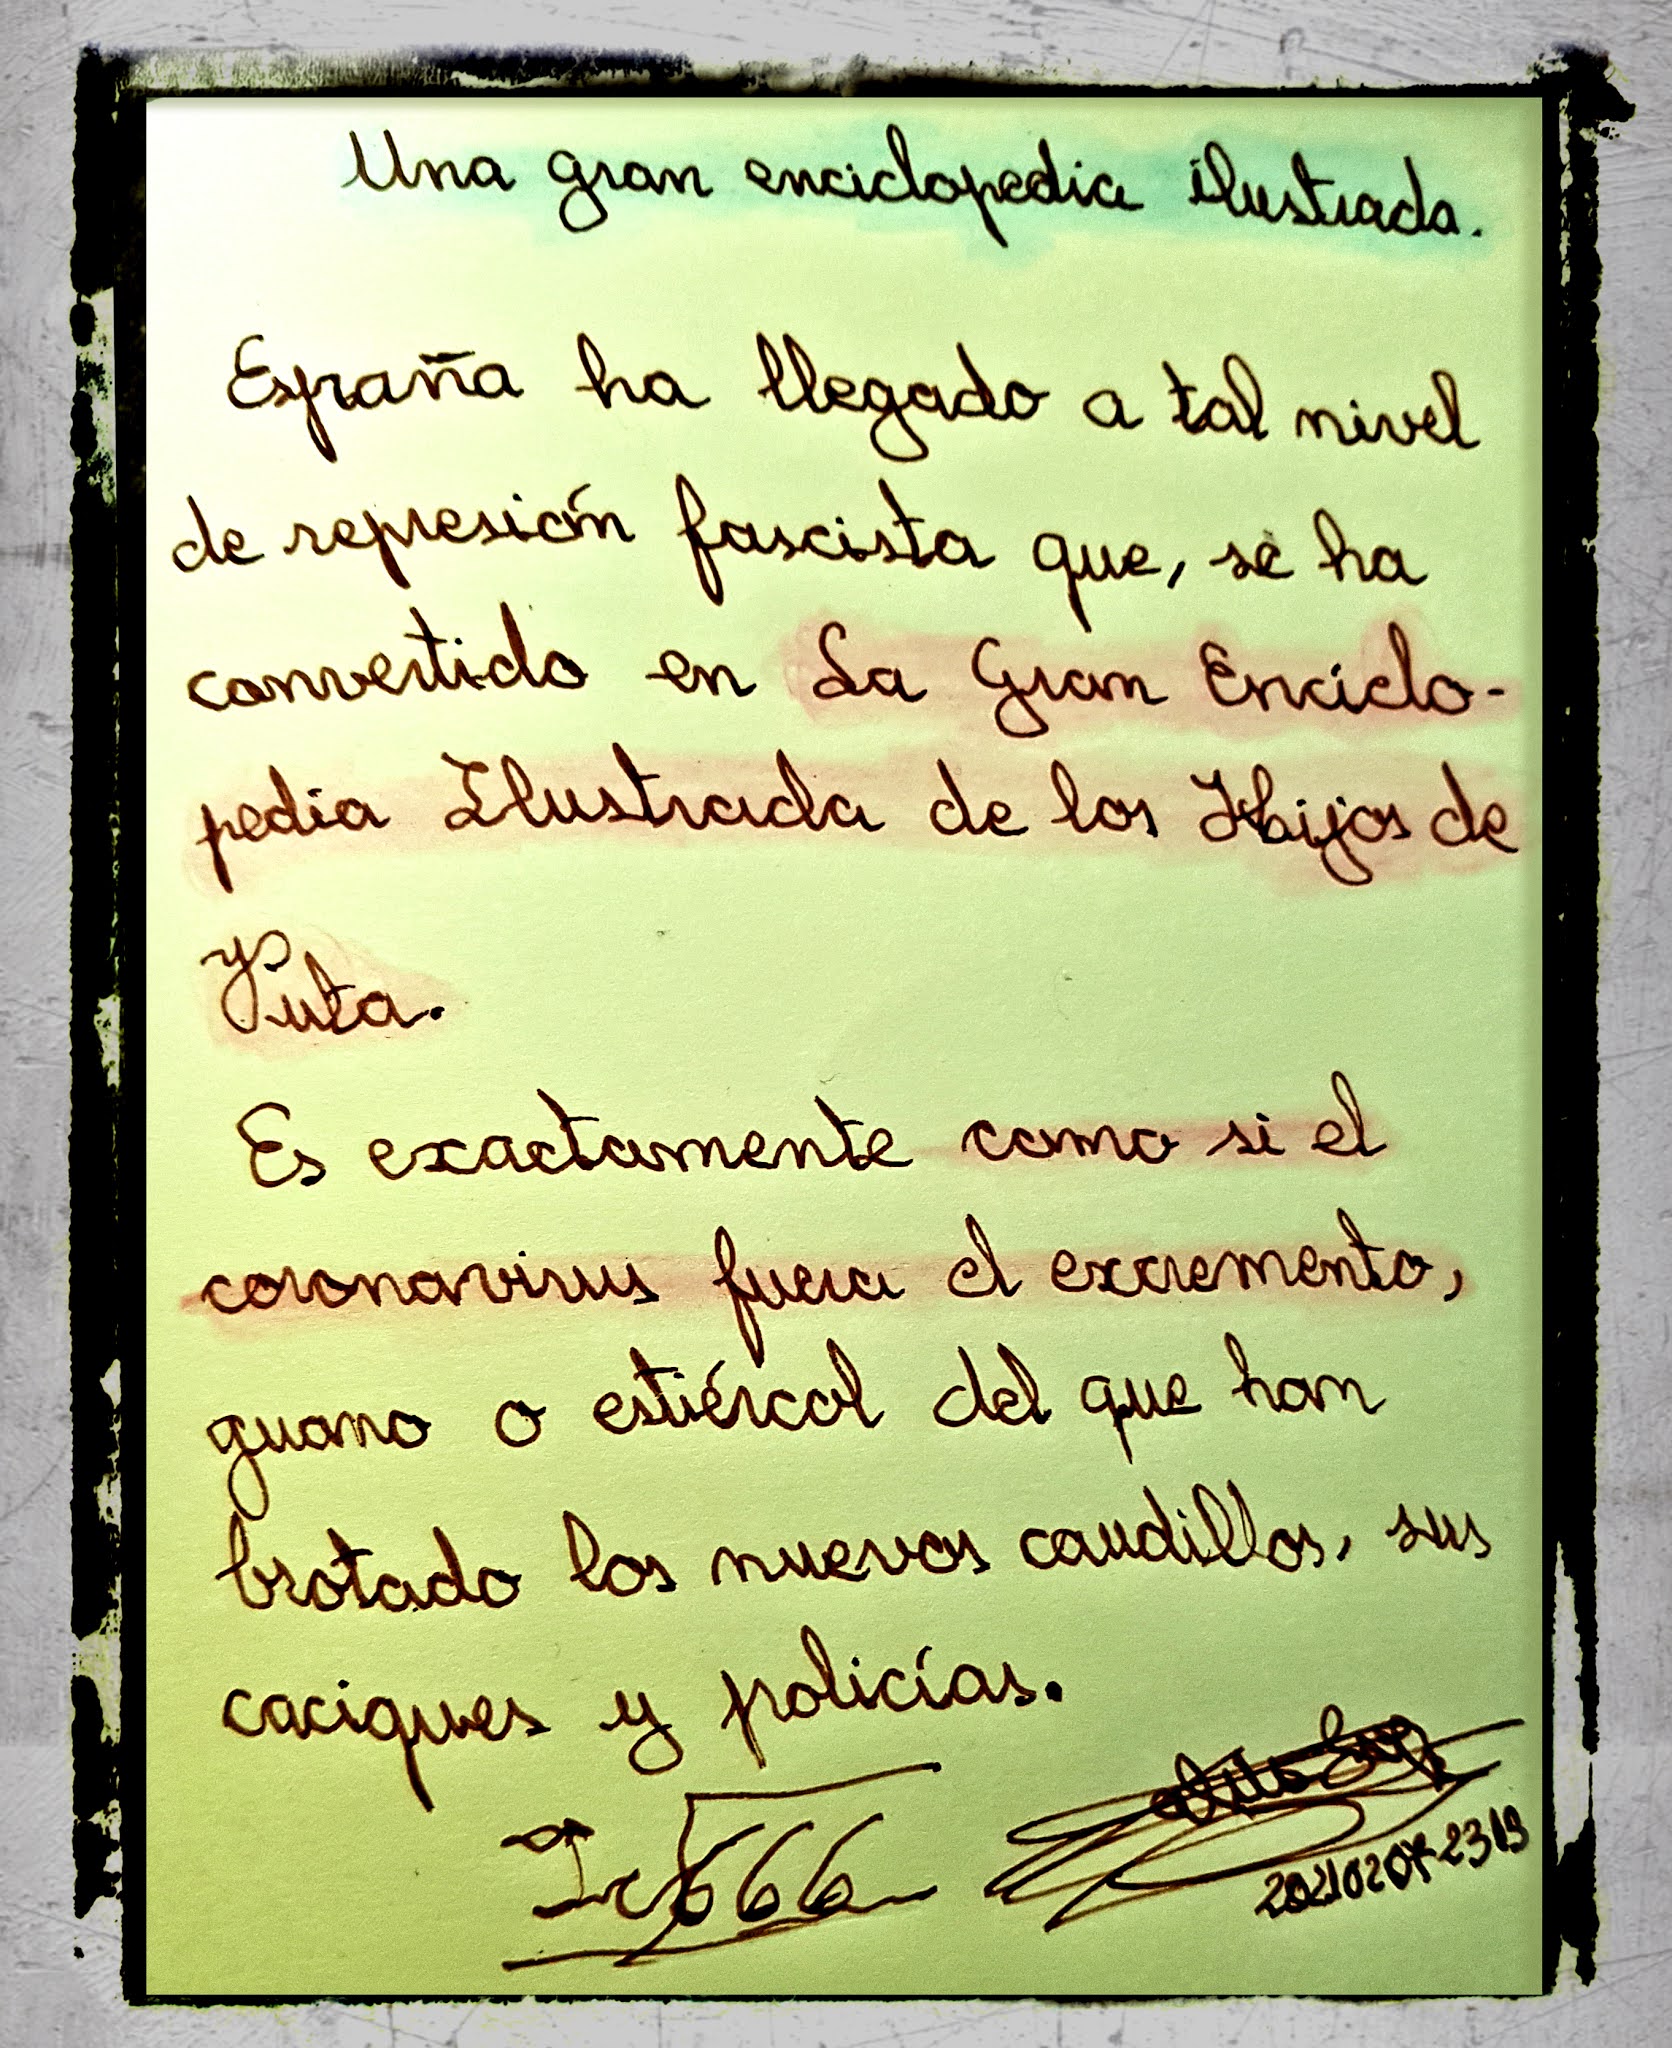 Una gran enciclopedia ilustrada.
España ha llegado a tal nivel
de represión fascista que, se ha
convertido en La Gran Enciclo-
pedia Ilustrada de los Hijos de
Puta.
Es exactamente como si el
coronavirus fuera el excremento,
guano o estiércol del que han
brotado los nuevos caudillos, sus
caciques y policías.
666
20210207-2319